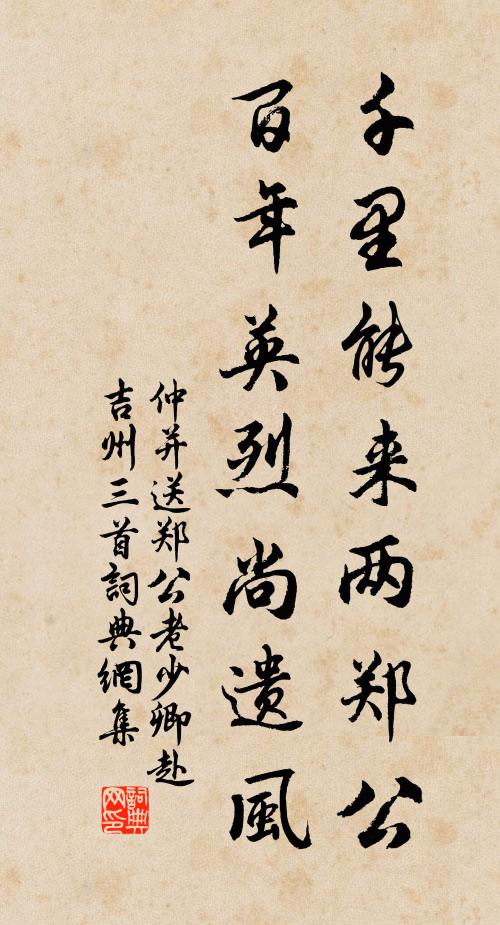 千里能来两郑公
百年英烈尚遗風
仲并送郑公老少卿赴
吉州三首詞典網集
詞典
网印